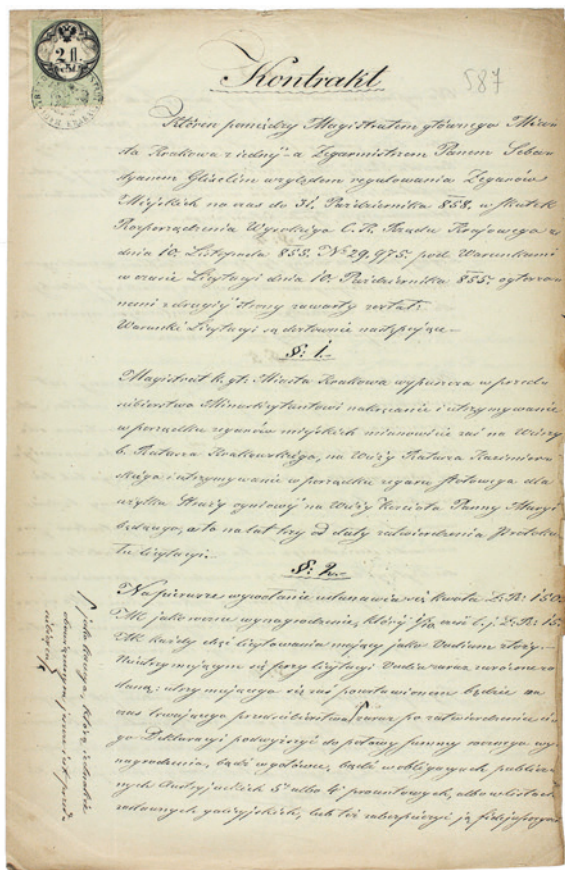 2 fl.
Kontrakt
587
Któren pomiędzy Magistratem głównego Mia
sta Krakowa z jedny - a Zegarmistrzem Panem Seba
styanem Gliselim względem regulowania Zegarów
Miejskich na czas do 31. Października 858. w skutek
Rozporządzenia Wysokiego C. K. Rządu Krajowego z
dnia 10. Listopada 855. No 29,975. pod Warunkami
w czasie Licytacyi dnia 10. Października 855. ogłoszo
nemi z drugiéj strony zawarty został:
Warunki Licytacyi są dosłownie następujące
§: 1.
Magistrat k. gł: Miasta Krakowa wypuszcza w przed
sibierstwo Minuskrytantowi nakręcanie i utrzymywanie
w porządku zegarów miejskich mianowicie zaś na Wieży
b. Ratusza Krakowskiego, na Wieży Ratusza Kazimierz
skiego i utrzymywanie w porządku zegaru stołowego dla
użytku Straży ogniowéj na Wieży Kościoła Panny Maryi
będącego, a to na lat trzy od daty zatwierdzenia Protoko
łu licytacyi.
§: 2.
Na pierwsze wywołanie ustanawia się kwota Z: R: 150
MK jako roczne wynagrodzenie, który 1/10 część t. j. Z: R: 15
MK każdy chęć licytowania mający jako Vadium złoży.
Nieutrzymującym się przy licytacyi Vadia zaraz zwrócone zo
daną; utrzymującego się zaś pozostawionem będzie na
czas trwającego przedsibierstwa zaraz po zatwierdzeniu
go Deklaracyi podwyższyć do połowy summy rocznego wy
nagrodzenia, bądź w gotówce, bądź w obligacyach publicz
nych Austryjackich 5 albo 4 procentowych, albo w listach
zastawnych galicyjskich, lub też zabezpieczyć ją
jako kaucya, którą
obowiązanym jest przed